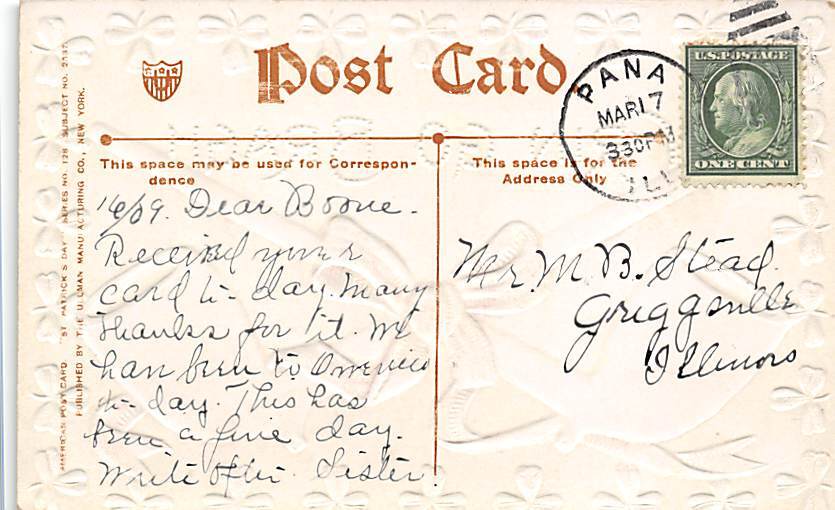 Post Card
PANA
MAR 17
3 30 PM
ILL
U.S. POSTAGE
ONE CENT
This space may be used for Correspon-
dence
This space is for the
Address Only
16/09. Dear Boone.
Received your
card to-day. Many
thanks for it. We
have been to Owaneco
to-day. This has
been a fine day.
Write often. Sister.
Mr. M. B. Stead.
Griggsville
Illinois
AMERICAN POST CARD "ST. PATRICK'S DAY" SERIES NO. 128 SUBJECT NO.
PUBLISHED BY THE ULLMAN MANUFACTURING CO., NEW YORK.